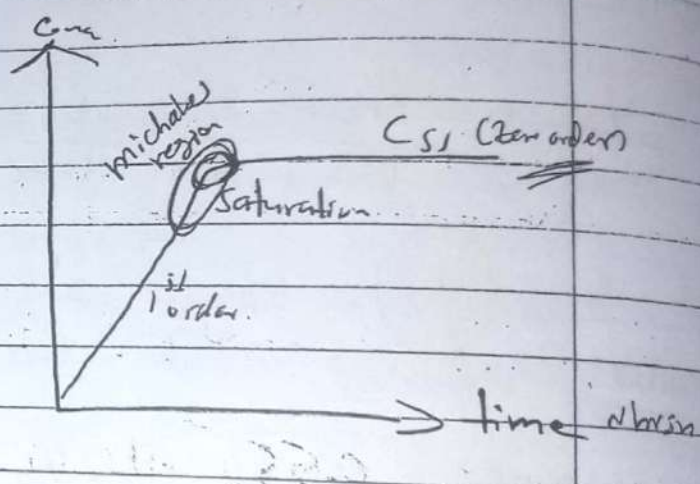 Conc
michales
region
Css (Zero order)
Saturation
1st order.
time